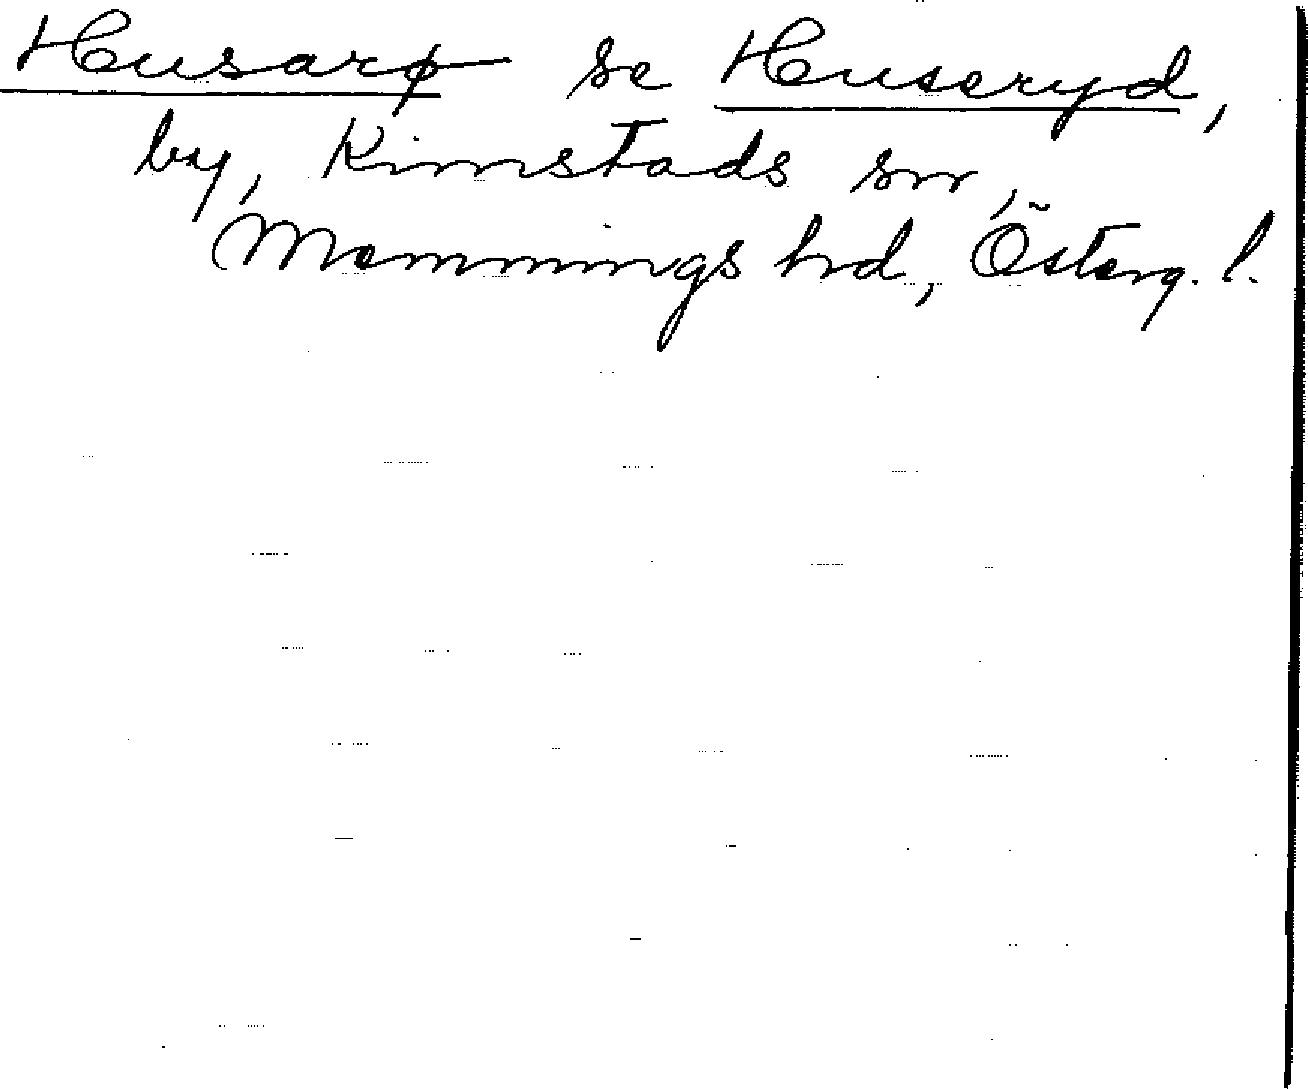 Husarφ se Huseryd,
by, Kimstads sn,
Memmings hd, Österg. l.